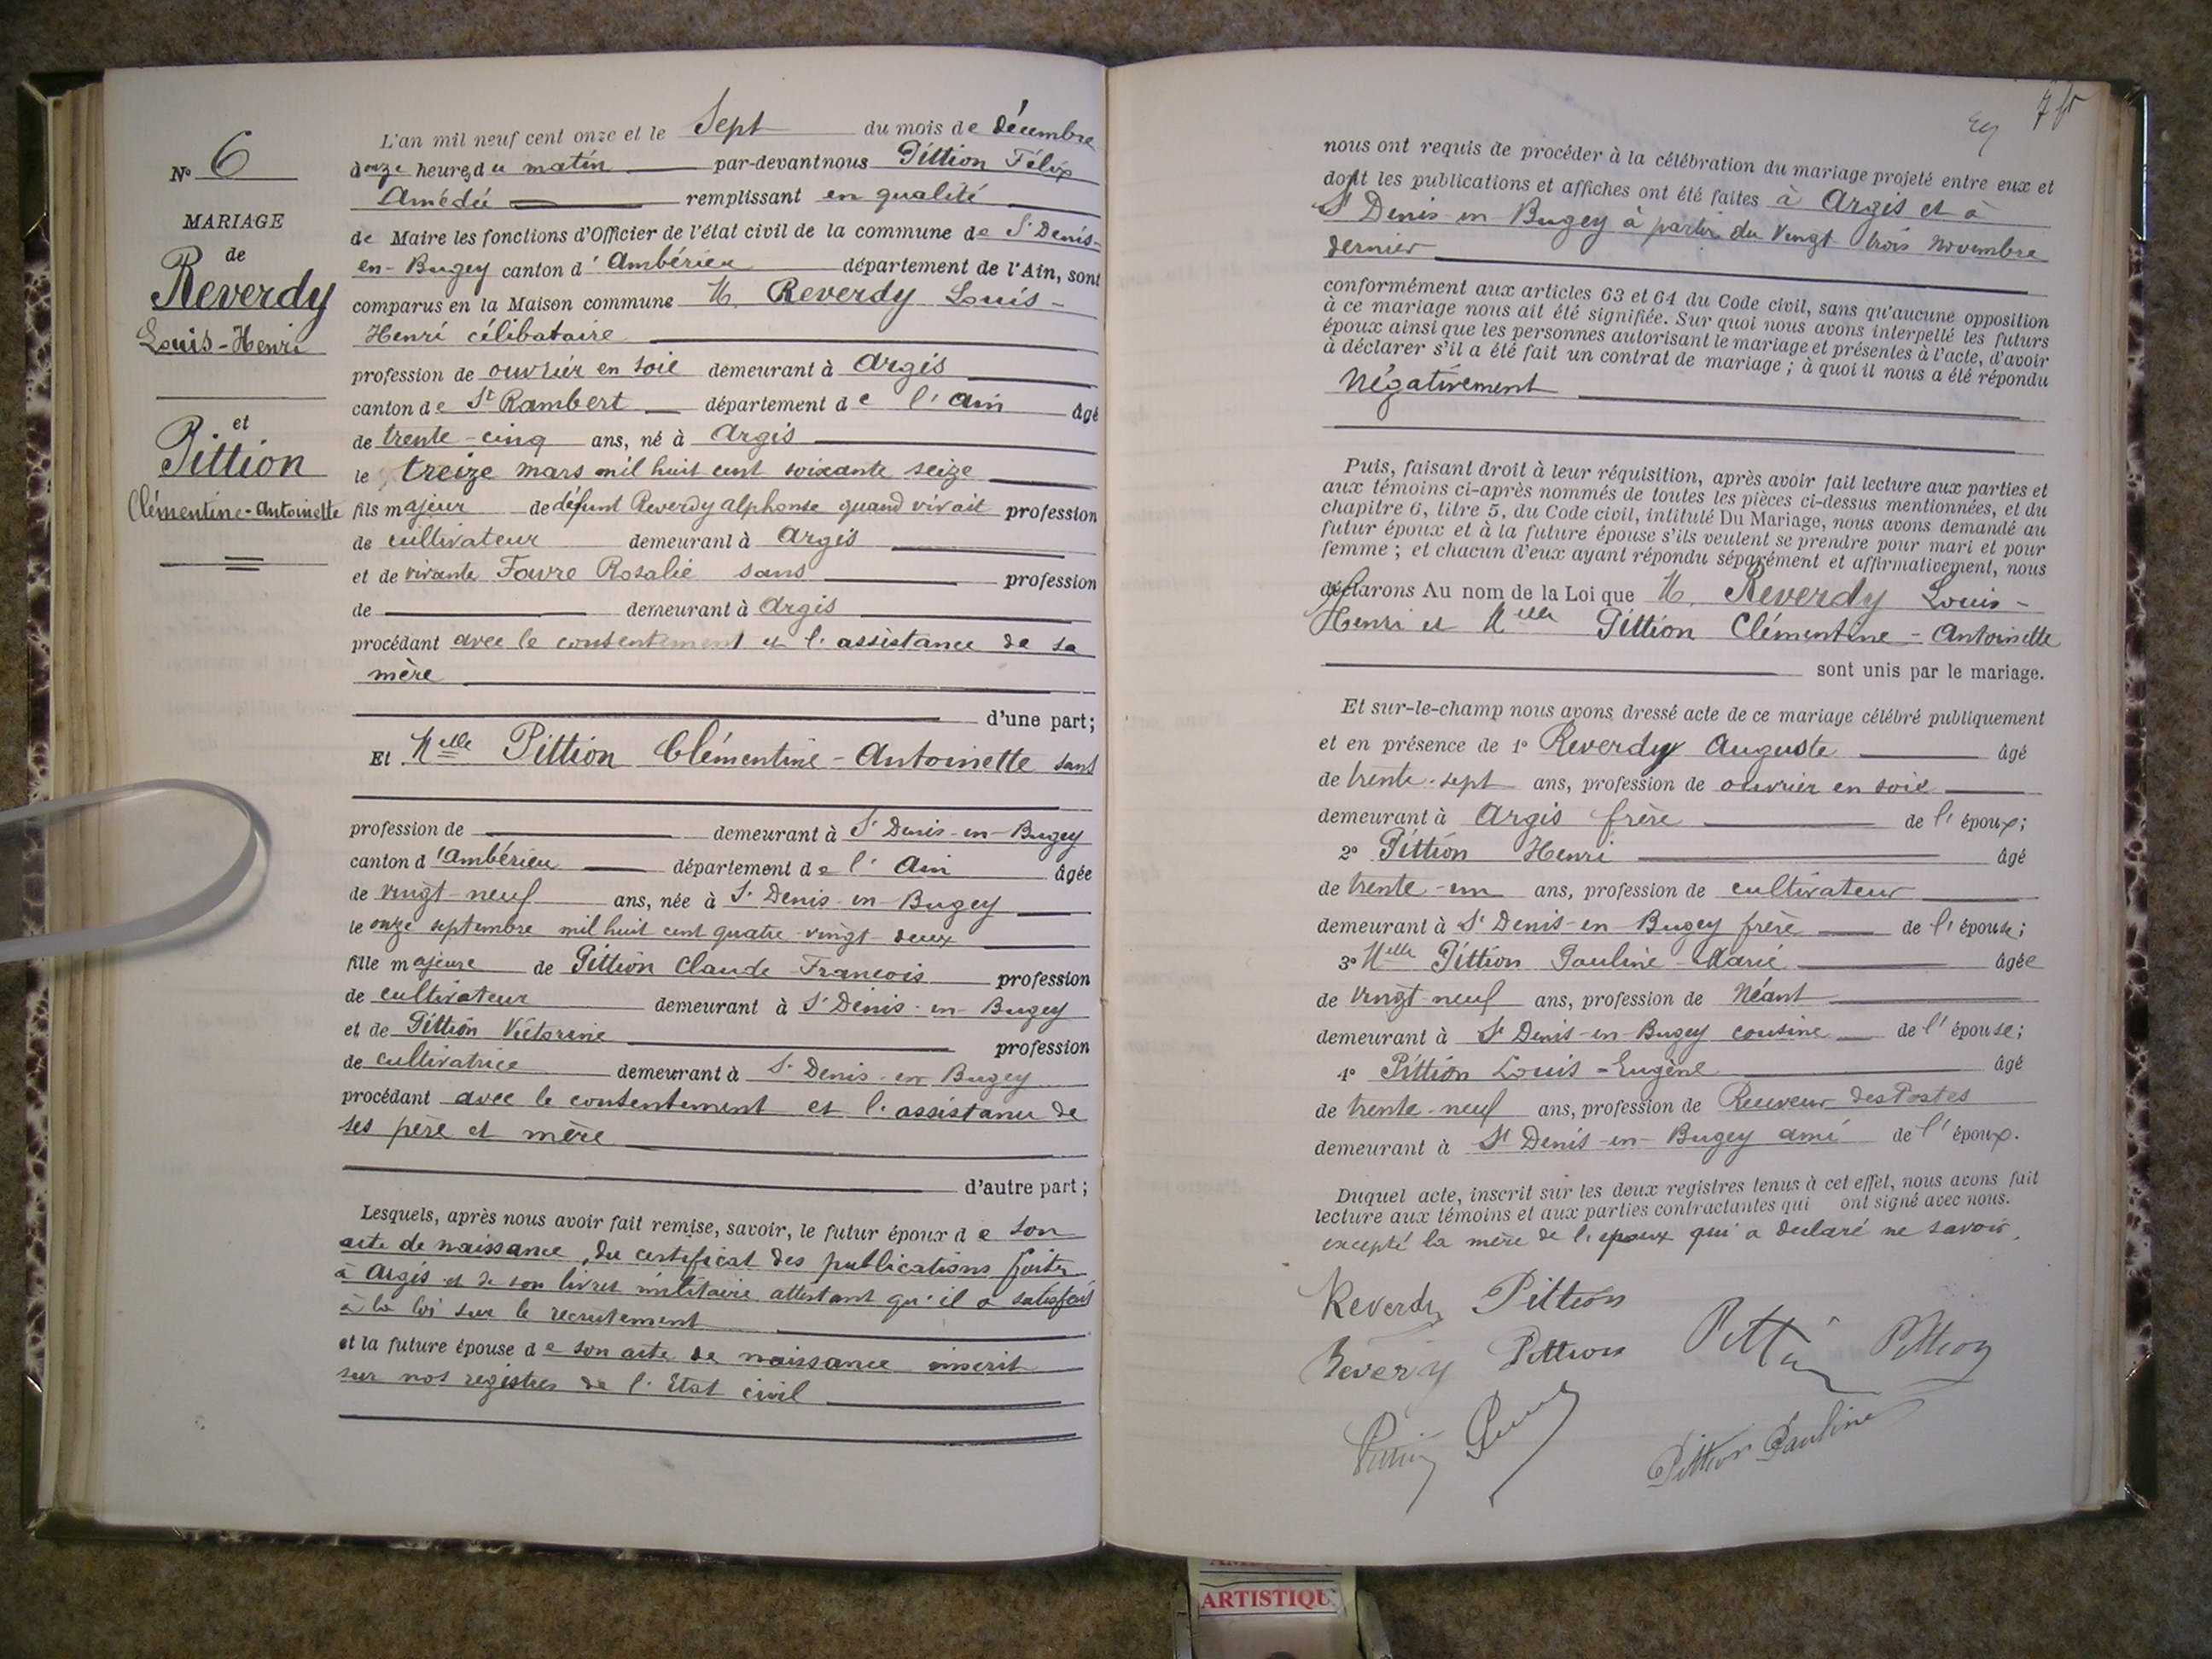 N° 6
MARIAGE
de
Reverdy
Louis-Henri
et
Pittion
Clémentine-Antoinette
L'an mil neuf cent onze et le Sept du mois de décembre
onze heures du matin par-devant nous Pittion Félix
Amédée remplissant en qualité
de Maire les fonctions d'Officier de l'état civil de la commune de St Denis-
en-Bugey canton d'Ambérieu département de l'Ain, sont
comparus en la Maison commune M. Reverdy Louis-
Henri célibataire
profession de ouvrier en soie demeurant à Argis
canton de St Rambert département de l'Ain âgé
de trente-cinq ans, né à Argis
le treize mars mil huit cent soixante seize
fils majeur de défunt Reverdy Alphonse quand vivait profession
de cultivateur demeurant à Argis
et de vivante Favre Rosalie sans profession
de demeurant à Argis
procédant avec le consentement et l'assistance de sa
mère
d'une part;
Et Melle Pittion Clémentine-Antoinette sans
profession de demeurant à St Denis-en-Bugey
canton d'Ambérieu département de l'Ain âgée
de vingt-neuf ans, née à St Denis-en-Bugey
le onze septembre mil huit cent quatre-vingt-deux
fille majeure de Pittion Claude-François profession
de cultivateur demeurant à St Denis-en-Bugey
et de Pittion Victorine profession
de cultivatrice demeurant à St Denis-en-Bugey
procédant avec le consentement et l'assistance de
ses père et mère
d'autre part;
Lesquels, après nous avoir fait remise, savoir, le futur époux de son
acte de naissance, du certificat des publications faites
à Argis et de son livret militaire attestant qu'il a satisfait
à la loi sur le recrutement
et la future épouse de son acte de naissance inscrit
sur nos registres de l'Etat civil
nous ont requis de procéder à la célébration du mariage projeté entre eux et
dont les publications et affiches ont été faites à Argis et à
St Denis-en-Bugey à partir du vingt-trois novembre
dernier
conformément aux articles 63 et 64 du Code civil, sans qu'aucune opposition
à ce mariage nous ait été signifiée. Sur quoi nous avons interpellé les futurs
époux ainsi que les personnes autorisant le mariage et présentes à l'acte, d'avoir
à déclarer s'il a été fait un contrat de mariage; à quoi il nous a été répondu
Négativement
Puis, faisant droit à leur réquisition, après avoir fait lecture aux parties et
aux témoins ci-après nommés de toutes les pièces ci-dessus mentionnées, et du
chapitre 6, titre 5, du Code civil, intitulé Du Mariage, nous avons demandé au
futur époux et à la future épouse s'ils veulent se prendre pour mari et pour
femme; et chacun d'eux ayant répondu séparément et affirmativement, nous
déclarons Au nom de la Loi que M. Reverdy Louis-
Henri et Melle Pittion Clémentine-Antoinette
sont unis par le mariage.
Et sur-le-champ nous avons dressé acte de ce mariage célébré publiquement
et en présence de 1° Reverdy Auguste âgé
de trente-sept ans, profession de ouvrier en soie
demeurant à Argis frère de l'époux;
2° Pittion Henri âgé
de trente-un ans, profession de cultivateur
demeurant à St Denis-en-Bugey frère de l'épouse;
3° Melle Pittion Pauline-Marie âgée
de vingt-neuf ans, profession de Néant
demeurant à St Denis-en-Bugey cousine de l'épouse;
4° Pittion Louis-Eugène âgé
de trente-neuf ans, profession de Receveur des Postes
demeurant à St Denis-en-Bugey ami de l'époux.
Duquel acte, inscrit sur les deux registres tenus à cet effet, nous avons fait
lecture aux témoins et aux parties contractantes qui ont signé avec nous.
excepté la mère de l'époux qui a déclaré ne savoir.
Reverdy Pittion
Reverdy Pittion Pittion Pittion
Pittion Pauline
ARTISTIQU